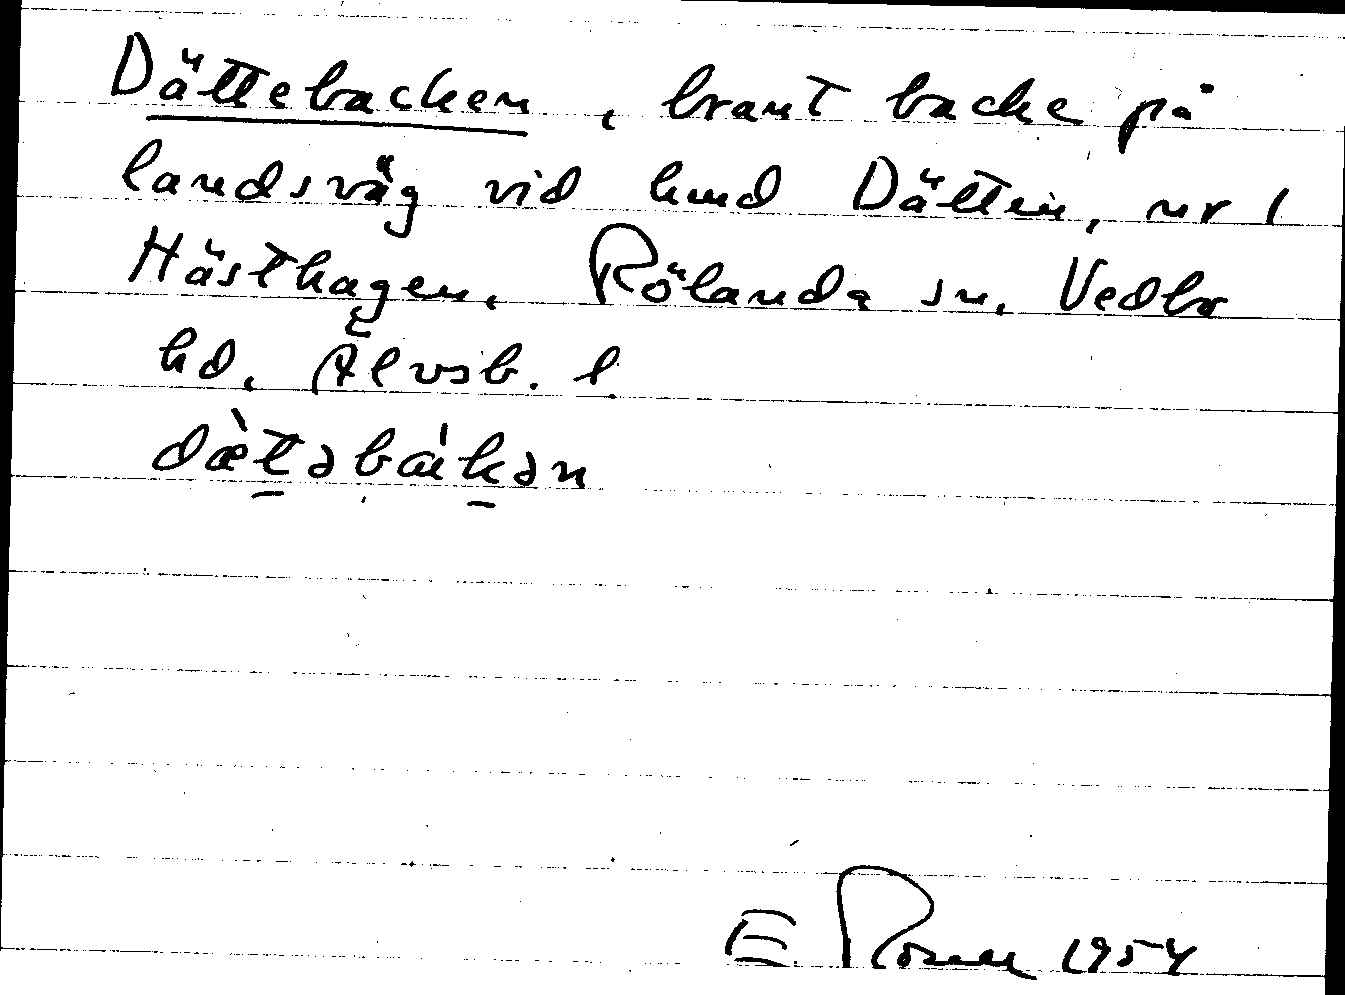 Dättebacken, brant backe på
landsväg vid hmd Dätten, nr 1
Hästhagen, Rölanda sn, Vedbo
hd, Älvsb. l.
dæ̀t̠əbák̠ən
E. Rosell 1954